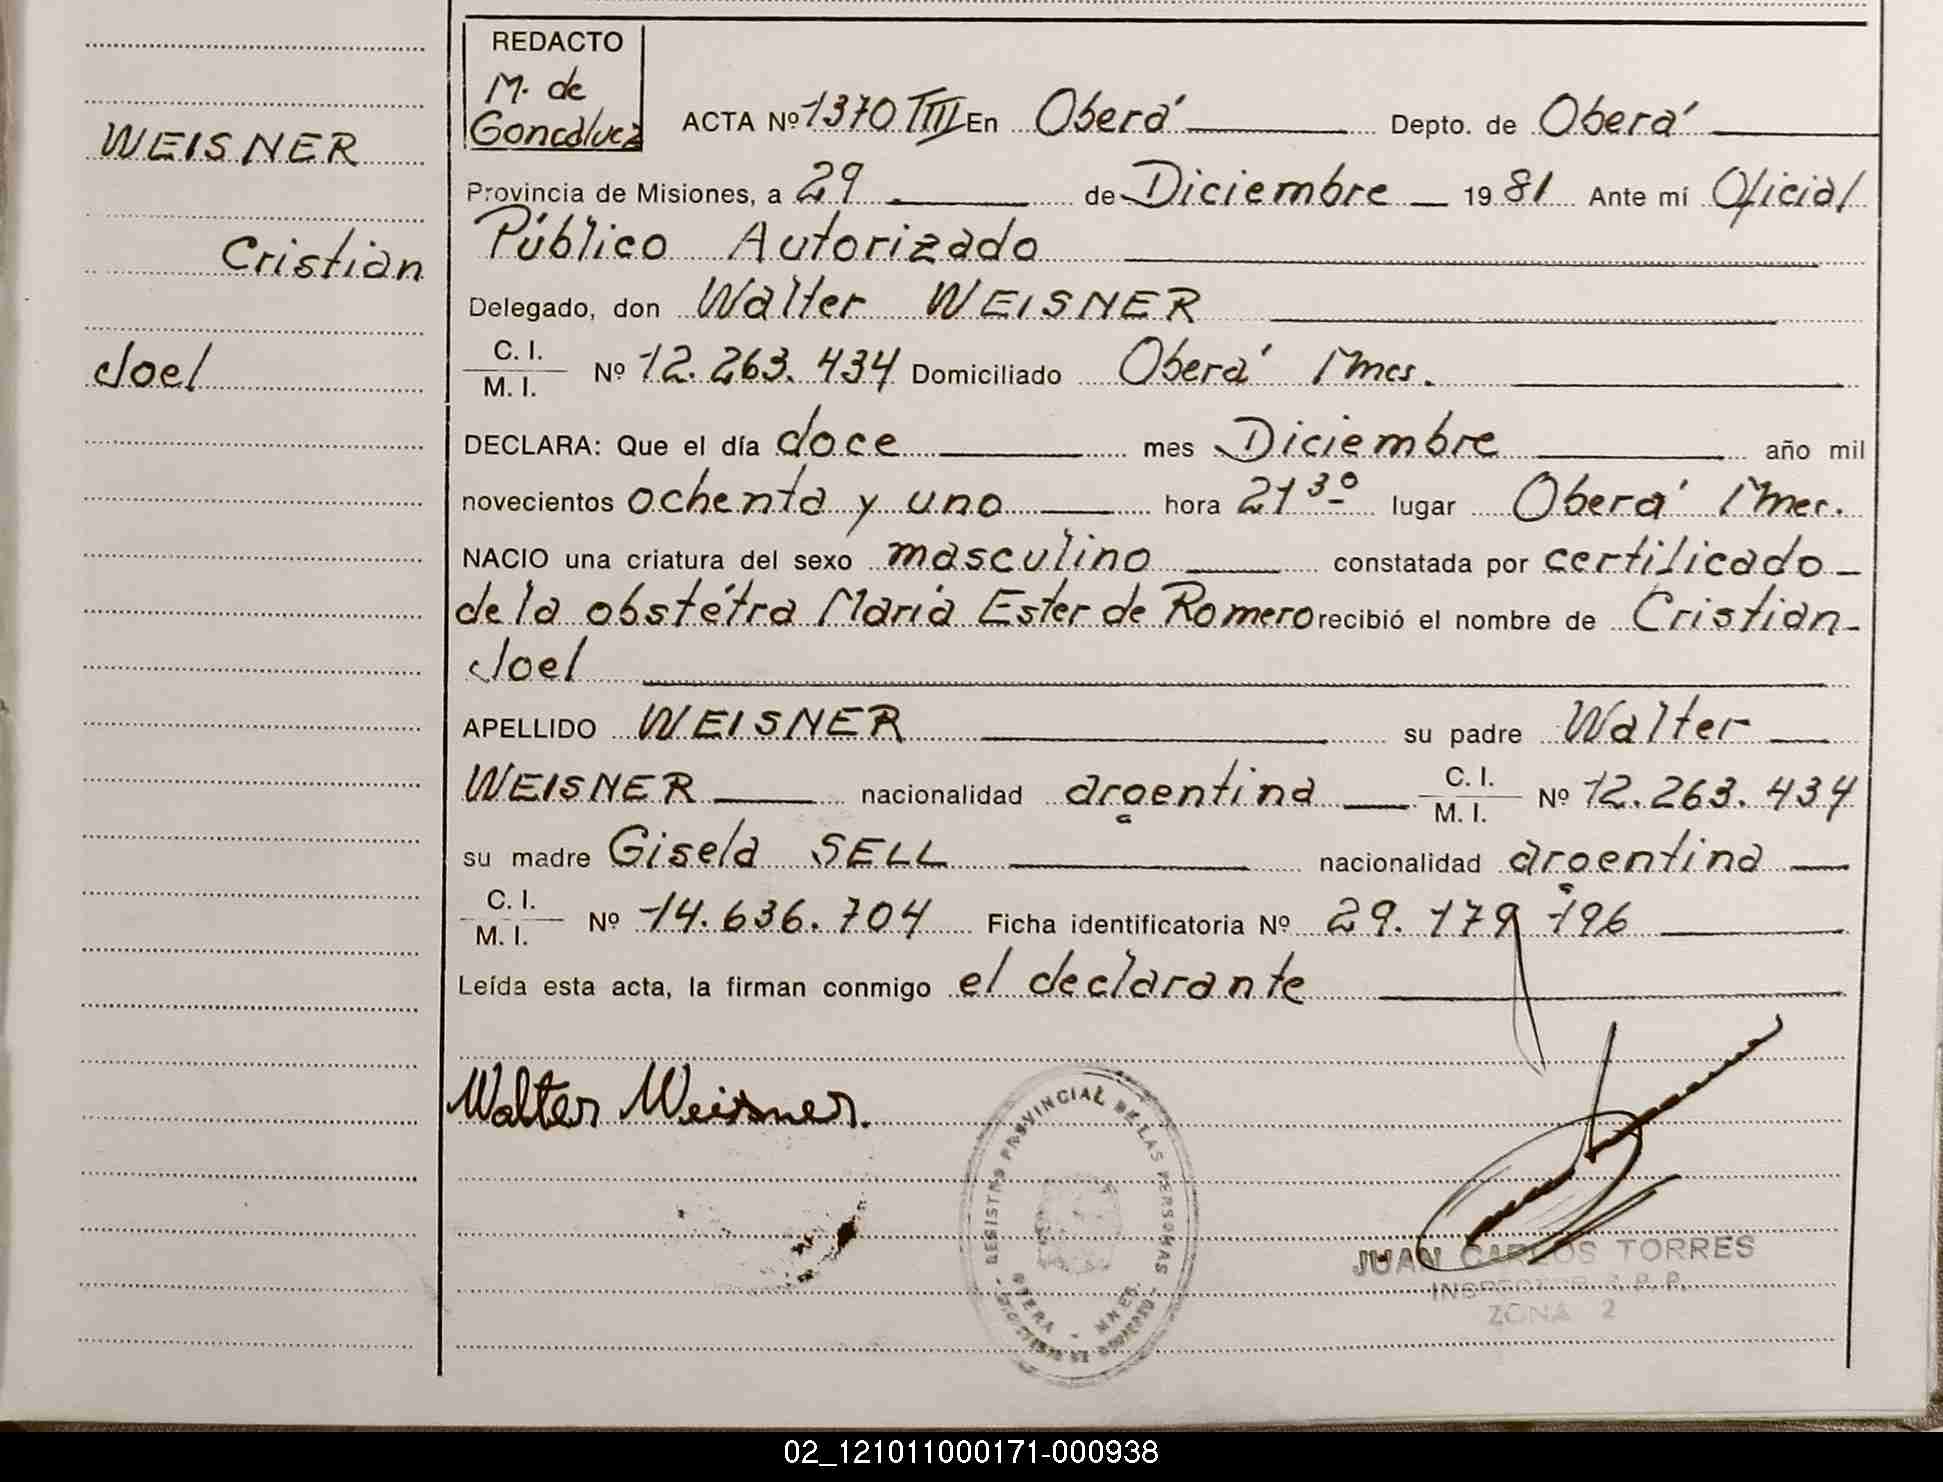 REDACTO
M. de
Goncalvez
WEISNER
Cristian
Joel
ACTA Nº 1370 TIII En Oberá Depto. de Oberá
Provincia de Misiones, a 29 de Diciembre 1981 Ante mí Oficial
Público Autorizado
Delegado, don Walter WEISNER
C. I.
M. I. Nº 12.263.434 Domiciliado Oberá Mnes.
DECLARA: Que el día doce mes Diciembre año mil
novecientos ochenta y uno hora 21 30 lugar Oberá Mnes.
NACIO una criatura del sexo masculino constatada por certificado
de la obstétra María Ester de Romero recibió el nombre de Cristian
Joel
APELLIDO WEISNER su padre Walter
WEISNER nacionalidad argentina C. I. M. I. Nº 12.263.434
su madre Gisela SELL nacionalidad argentina
C. I.
M. I. Nº 14.636.704 Ficha identificatoria Nº 29.179.196
Leída esta acta, la firman conmigo el declarante
Walter Weisner.
REGISTRO PROVINCIAL DE LAS PERSONAS
OBERA - MNES.
JUAN CARLOS TORRES
INSPECTOR R.P.P.
ZONA 2
02_121011000171-000938